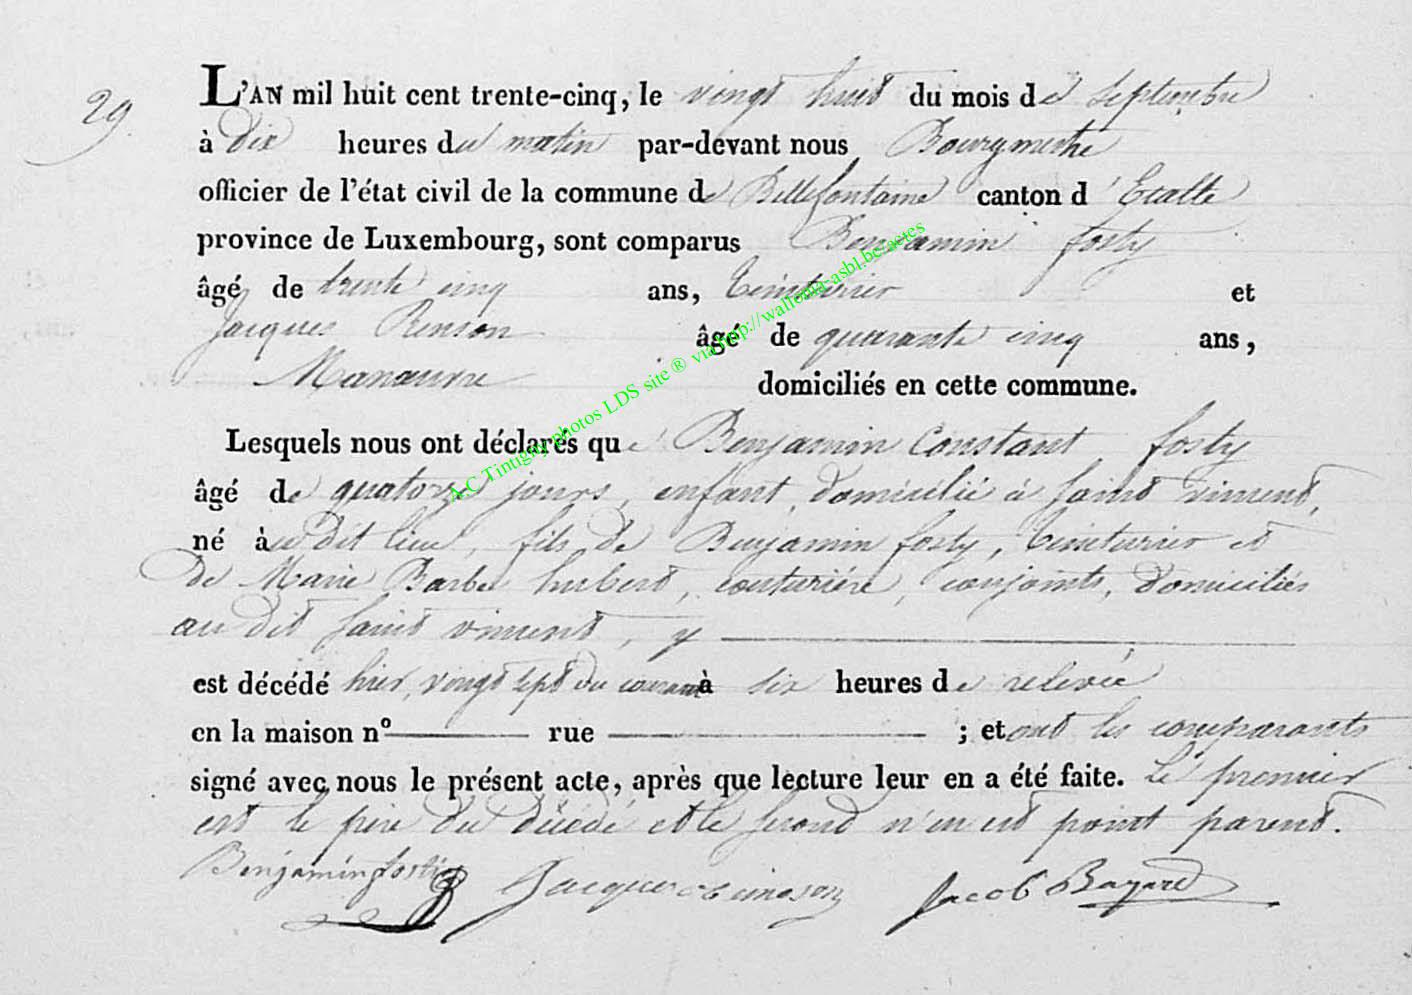 29.
L'AN mil huit cent trente-cinq, le vingt huit du mois de septembre
à dix heures du matin par-devant nous Bourgmestre
officier de l'état civil de la commune de Bellefontaine canton d'Etalle
province de Luxembourg, sont comparus Benjamin fosty
âgé de trente cinq ans, teinturier et
Jacques Renson âgé de quarante cinq ans,
Manœuvre domiciliés en cette commune.
Lesquels nous ont déclarés que Benjamin Constant fosty
âgé de quatorze jours, enfant, domicilié à saint vincent,
né au dit lieu, fils de Benjamin fosty, teinturier et
de Marie Barbe hubert, couturière, conjoints, domiciliés
au dit saint vincent, y
est décédé hier, vingt sept du courant à six heures de relevée
en la maison nº rue ; et ont les comparants
signé avec nous le présent acte, après que lecture leur en a été faite. Le premier
est le père du décédé et le second n'en est point parent.
Benjamin fosty Jacques Jacob Bayard
A.C Tintigny photos LDS site ® via http://wallonia-asbl.be/actes